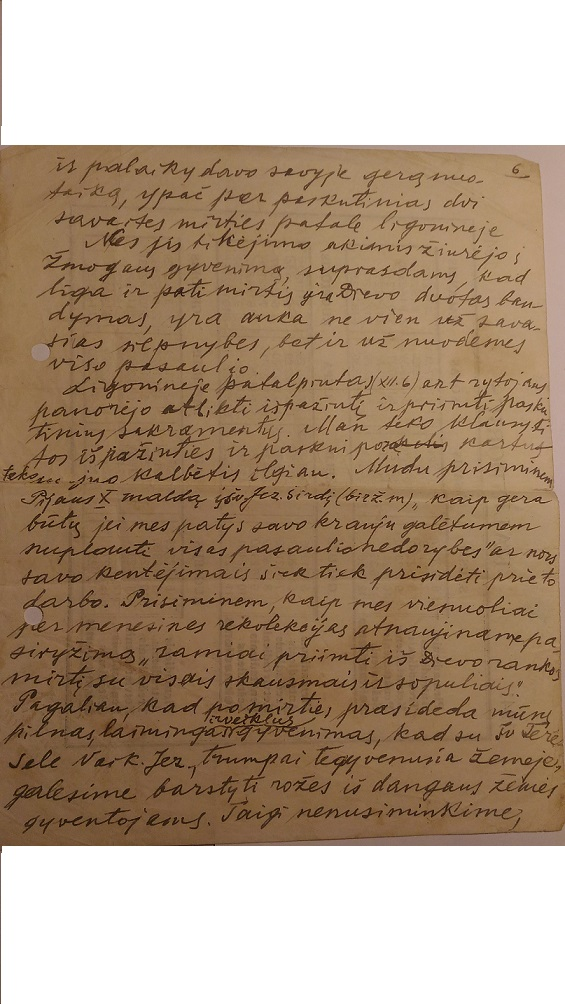 6
is palaikydavo savyje gerą nuo-
taiką, ypač per paskutinias dvi
savaites mirties patale ligoninėje
Nes jis tikėjimo akimis žiurėjo į
žmogaus gyvenimą, suprasdams, kad
liga ir pati mirtis yra Dievo duotas ban-
dymas, yra auka ne vien už sava-
sias silpnybes, bet ir už nuodėmes
viso pasaulio.
Ligoninėje patalpintas (XII.6) ant rytojaus
panorėjo atlikti išpažintį ir priimti pasku
tinius sakramentus. Man teko klausyti
tos išpažinties ir paskui kartu
teko su juo kalbėtis ilgiau. Mudu prisiminem
Pijaus X maldą Jėz. Širdį (birž. m) „kaip gera
būtų jei mes patys savo krauju galėtumem
nuplauti visas pasaulio nedorybes" ar nors
savo kentėjimais šiek tiek prisidėti prie to
darbo. Prisiminem, kaip mes vienuoliai
per mėnesines rekolekcijas atnaujiname pa
siryžimą „ramiai priimti iš Dievo rankos
mirtį su visais skausmais ir sopuliais."
Pagaliau, kad po mirties prasideda mūsų
pilnas, laimingas ir veiklus gyvenimas, kad su šv Tere
sele Vaik. Jėz., trumpai tegyvenusia žemėje,
galėsime barstyti rožes iš dangaus žemės
gyventojams. Taigi nenusiminkime,